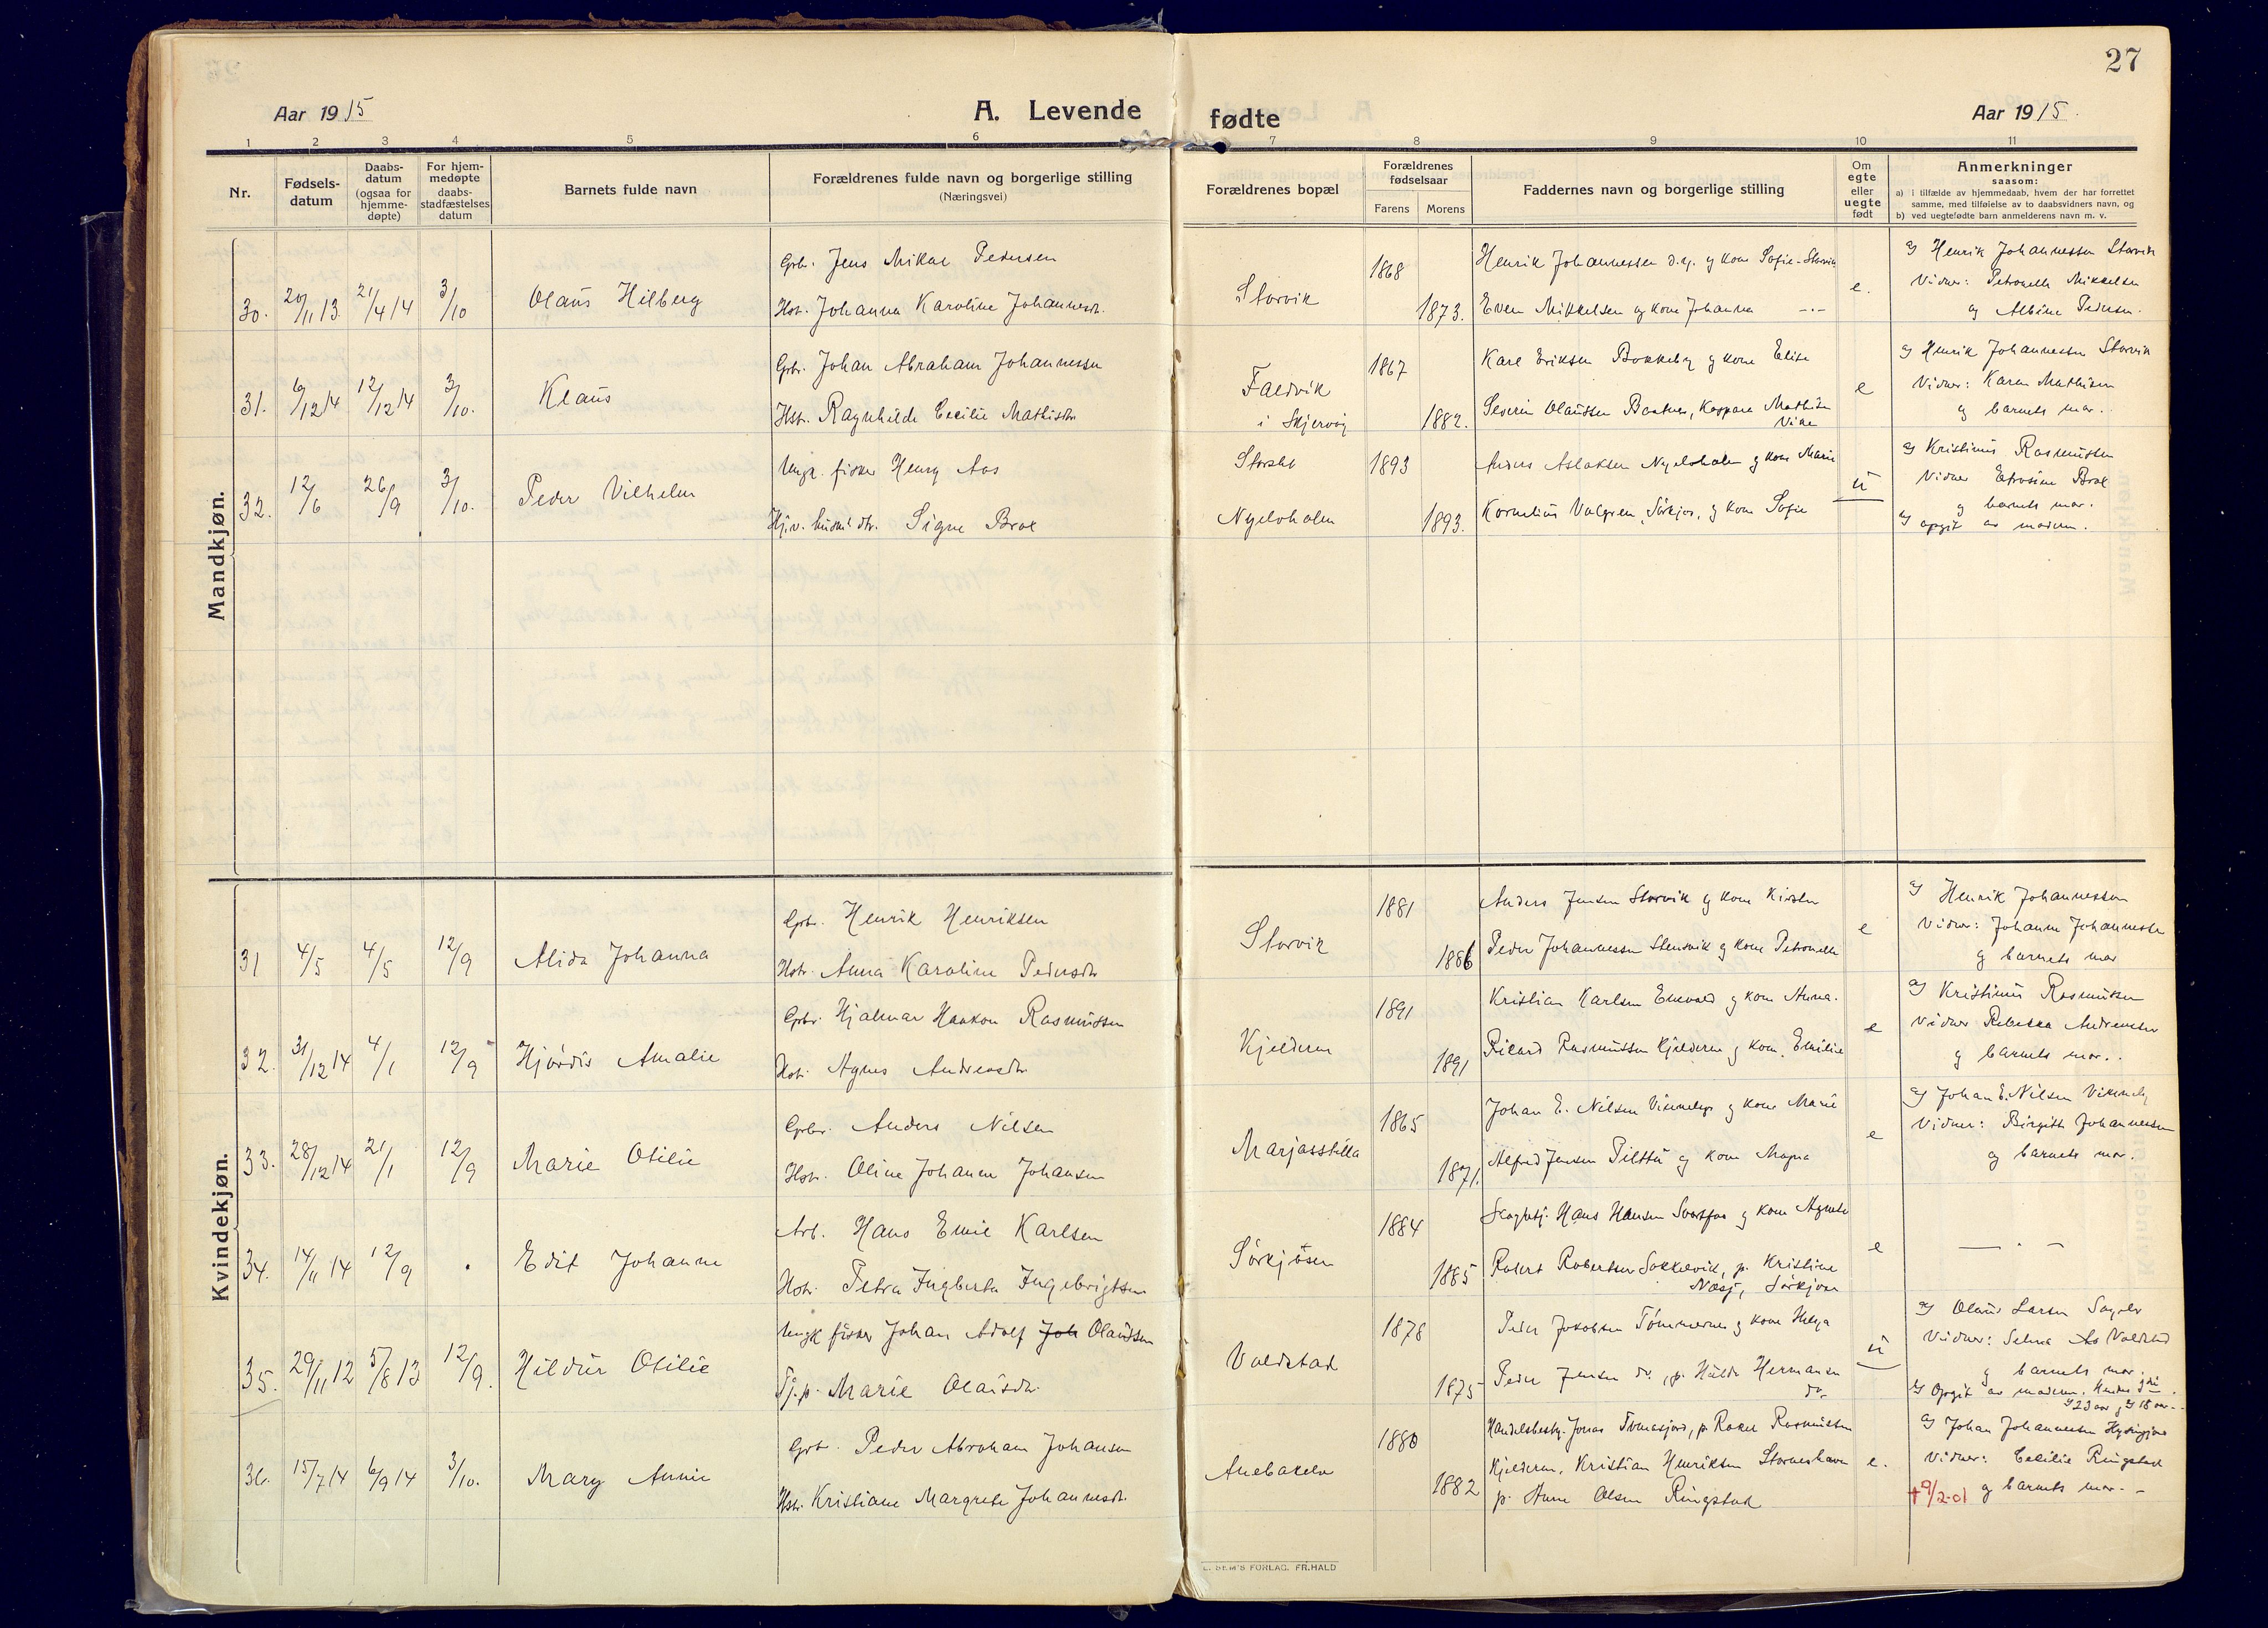 27
Aar 1915
A. Levende
fødte
Aar 1915.
1 2 3 4 5 6 7 8 9 10 11
Nr.
Fødsels-
datum
Daabs-
datum
(ogsaa for
hjemme-
døpte)
For hjem-
medøpte
daabs-
stadfæstelses
datum
Barnets fulde navn
Forældrenes fulde navn og borgerlige stilling
(Næringsvei)
Forældrenes bopæl
Forældrenes
fødselsaar
Farens Morens
Faddernes navn og borgerlige stilling
Om
egte
eller
uegte
født
Anmerkninger
saasom:
a) i tilfælde av hjemmedaab, hvem der har forrettet
samme, med tilføielse av to daabsvidners navn, og
b) ved uegtefødte barn anmelderens navn m. v.
Mandkjøn.
30. 20/11 13. 21/4 14 3/10 Olaus Hilberg
Grb. Jens Mikal Pedersen
Hst. Johanna Karoline Johannesdtr.
Storvik
1868
1873.
Henrik Johannessen d.y. og kone Sofie - Storvik
Even Mikkelsen og kone Johanna -"-
e.
a) Henrik Johannessen Storvik
Vidner: Petronelle Mikkelsen
og Albine Pedersen.
31. 6/12 14 12/12 14 3/10. Klaus
Grbr. Johan Abraham Johannessen
Hst. Ragnhilde Cecilie Mathisdtr
Faldvik
i Skjervøy
1867
1882.
Karl Eriksen Bakkeby og kone Elise
Severin Olaussen Kaspara Mathisen
e
a) Henrik Johannessen Storvik
Vidner: Karen Mathisen
og barnets mor.
32. 12/6 26/9 3/10. Peder Vilhelm
Ungk. fisker Henry Aas
Signe Brox
Storslet
Nyelvholm
1893
1893.
Anders Aslaksen Nyelvholm og kone Marie
Kornelius Valgren, Sörkjos, og kone Sofie
u
a) Kristinus Rasmussen
Vidner Brox
og barnets mor.
b) opgit av moderen.
Kvindekjøn.
31 4/5 4/5 12/9 Alida Johanna
Grbr. Henrik Henriksen
Hst. Anna Karoline Pedersdtr
Storvik
1881
1886
Anders Jensen Storvik og kone Kirsten
Peder Johannessen Storvik og kone Petronelle
e
a) Henrik Johannessen
Vidner: Johanne Johannesdtr
og barnets mor
32. 31/12 14 4/1 12/9 Hjördis Amalie
Grbr. Hjalmar Haakon Rasmussen
Hst. Agnes Andreasdtr
Kjelderen
1891
1891
Kristian Karlsen og kone Anna.
Rikard Rasmussen Kjelderen og kone Emilie
e
a) Kristinus Rasmussen
Vidner Rebekka
og barnets mor.
33. 28/12 14 21/1 12/9 Marie Otilie
Grbr. Anders Nilsen
Hst. Oline Johanne Johansen
Marjasstilla
1865
1871.
Johan E. Nilsen og kone Marie
Alfred Jensen Pilttu og kone Magna
e
a) Johan E. Nilsen
Vidner: Birgitte Johannessen
og barnets mor.
34. 14/11 14 12/9 . Edit Johanne
Arb. Hans Emil Karlsen
Hst. Petra Ingberta Ingebrigtsen
Sörkjosen
1884
1885
Hans Hansen Svartfos og kone Agnete
Robert Robertsen Sokkelvik, p. Kristine
Næsj, Sörkjosen
e
35. 29/11 12 5/8 13 12/9. Hildur Otilie
Ungk fisker Johan Adolf Joh Olaussen
Tj.p. Marie Olaisdtr.
Valdstad
1878
1875
Peder Jakobsen Tömmernes og kone Helga
Peder Jensen ds., p. Hulda Hermansen
ds.
u
a) Olaus Larsen
Vidner: Selma
og barnets mor.
b) Opgit av moderen.
36. 15/7 14 6/9 14 3/10. Mary Annie
Grb. Peder Abraham Johansen
Hst. Kristiane Margrete Johannesdtr.
1880
1882
Handelsbesty. Jonas Tomasjord, p. Rakel Rasmussen
Kjelderen, Kristian Henriksen Storneshavn
p. Anne Olsen Ringstad
e.
a) Johan Johannessen
Vidner: Cecilie Ringstad
og barnets mor.
† 9/2-01
E. SEM'S FORLAG. FR.HALD